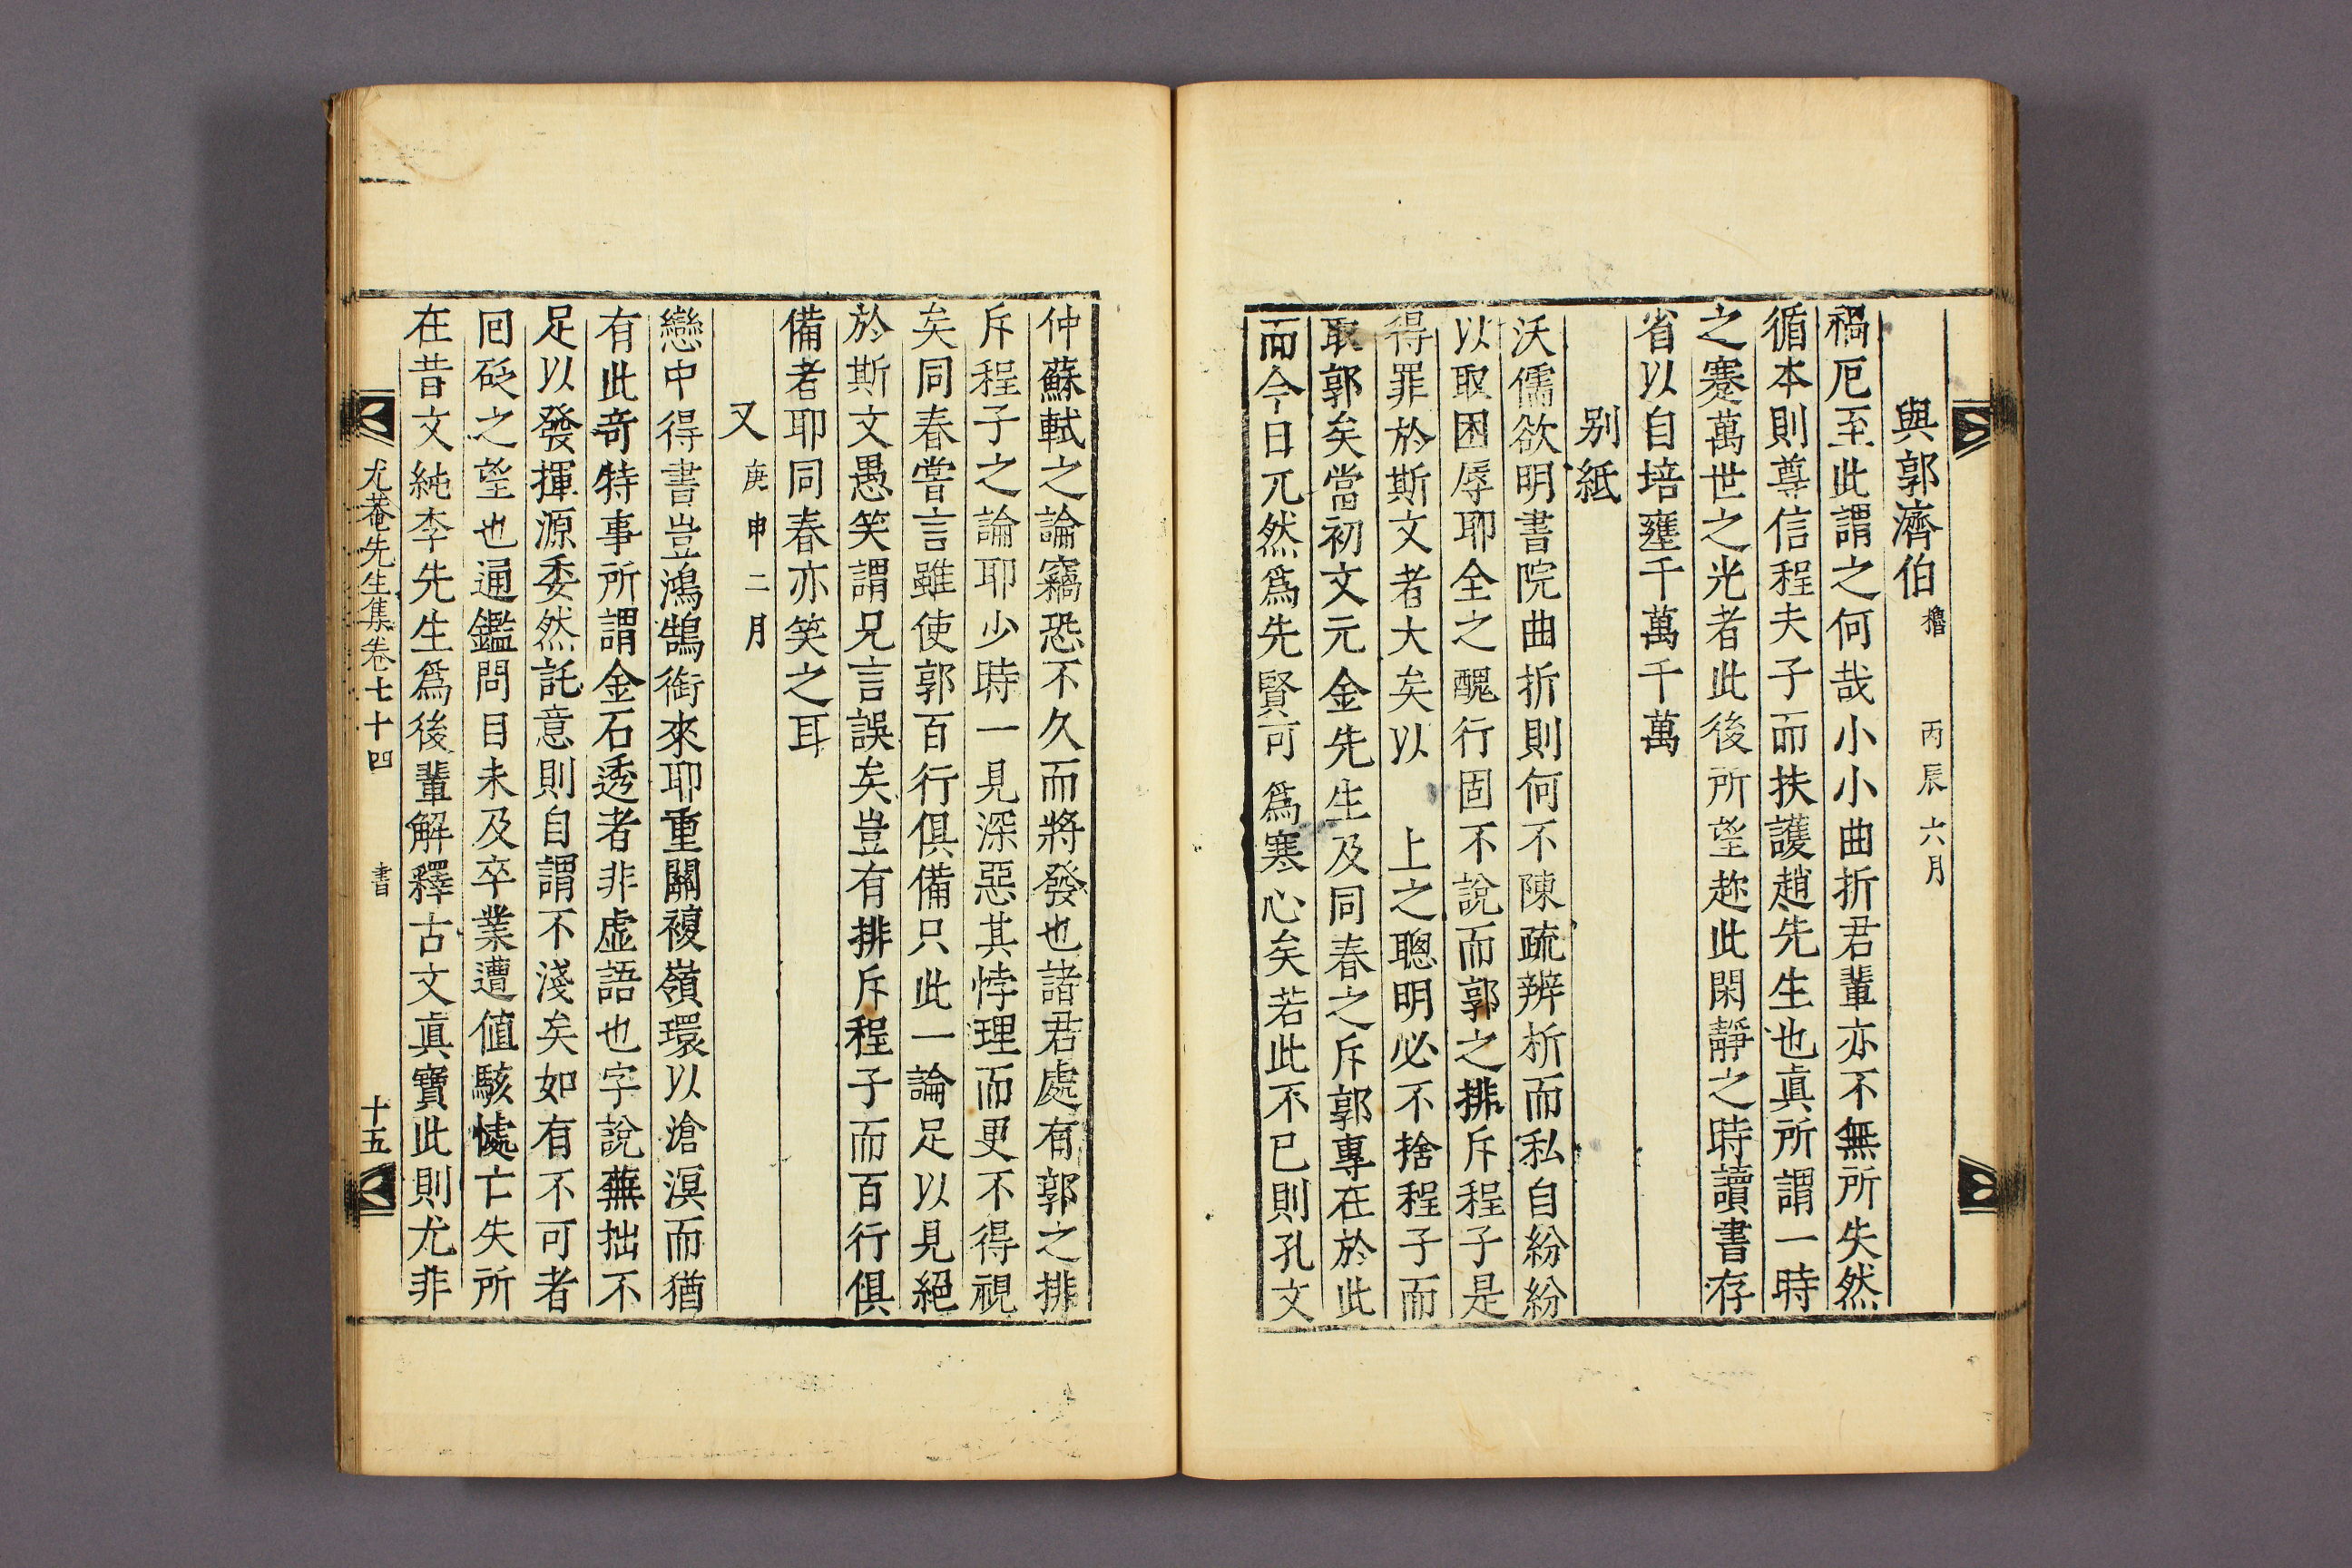 與郭濟伯 丙辰六月
禍厄至此謂之何哉小小曲折君輩亦不無所失然
循本則尊信程夫子而扶護趙先生也眞所謂一時
之蹇萬世之光者此後所望趂此閑靜之時讀書存
省以自培壅千萬千萬
別紙
沃儒欲明書院曲折則何不陳疏辨析而私自紛紛
以取困辱耶全之醜行固不說而郭之排斥程子是
得罪於斯文者大矣以 上之聰明必不捨程子而
取郭矣當初文元金先生及同春之斥郭專在於此
而今日兀然爲先賢可爲寒心矣若此不已則孔文
仲蘇軾之論竊恐不久而將發也諸君處有郭之排
斥程子之論耶少時一見深惡其悖理而更不得視
矣同春嘗言雖使郭百行俱備只此一論足以見絕
於斯文愚笑謂兄言誤矣豈有排斥程子而百行俱
備者耶同春亦笑之耳
又 庚申二月
戀中得書豈鴻鵠銜來耶重關複嶺環以滄溟而猶
有此奇特事所謂金石透者非虛語也字說蕪拙不
足以發揮源委然託意則自謂不淺矣如有不可者
回砭之望也通鑑問目未及卒業遭值駭㥘亡失所
在昔文純李先生爲後輩解釋古文眞寶此則尤非
尤菴先生集卷七十四 書 十五